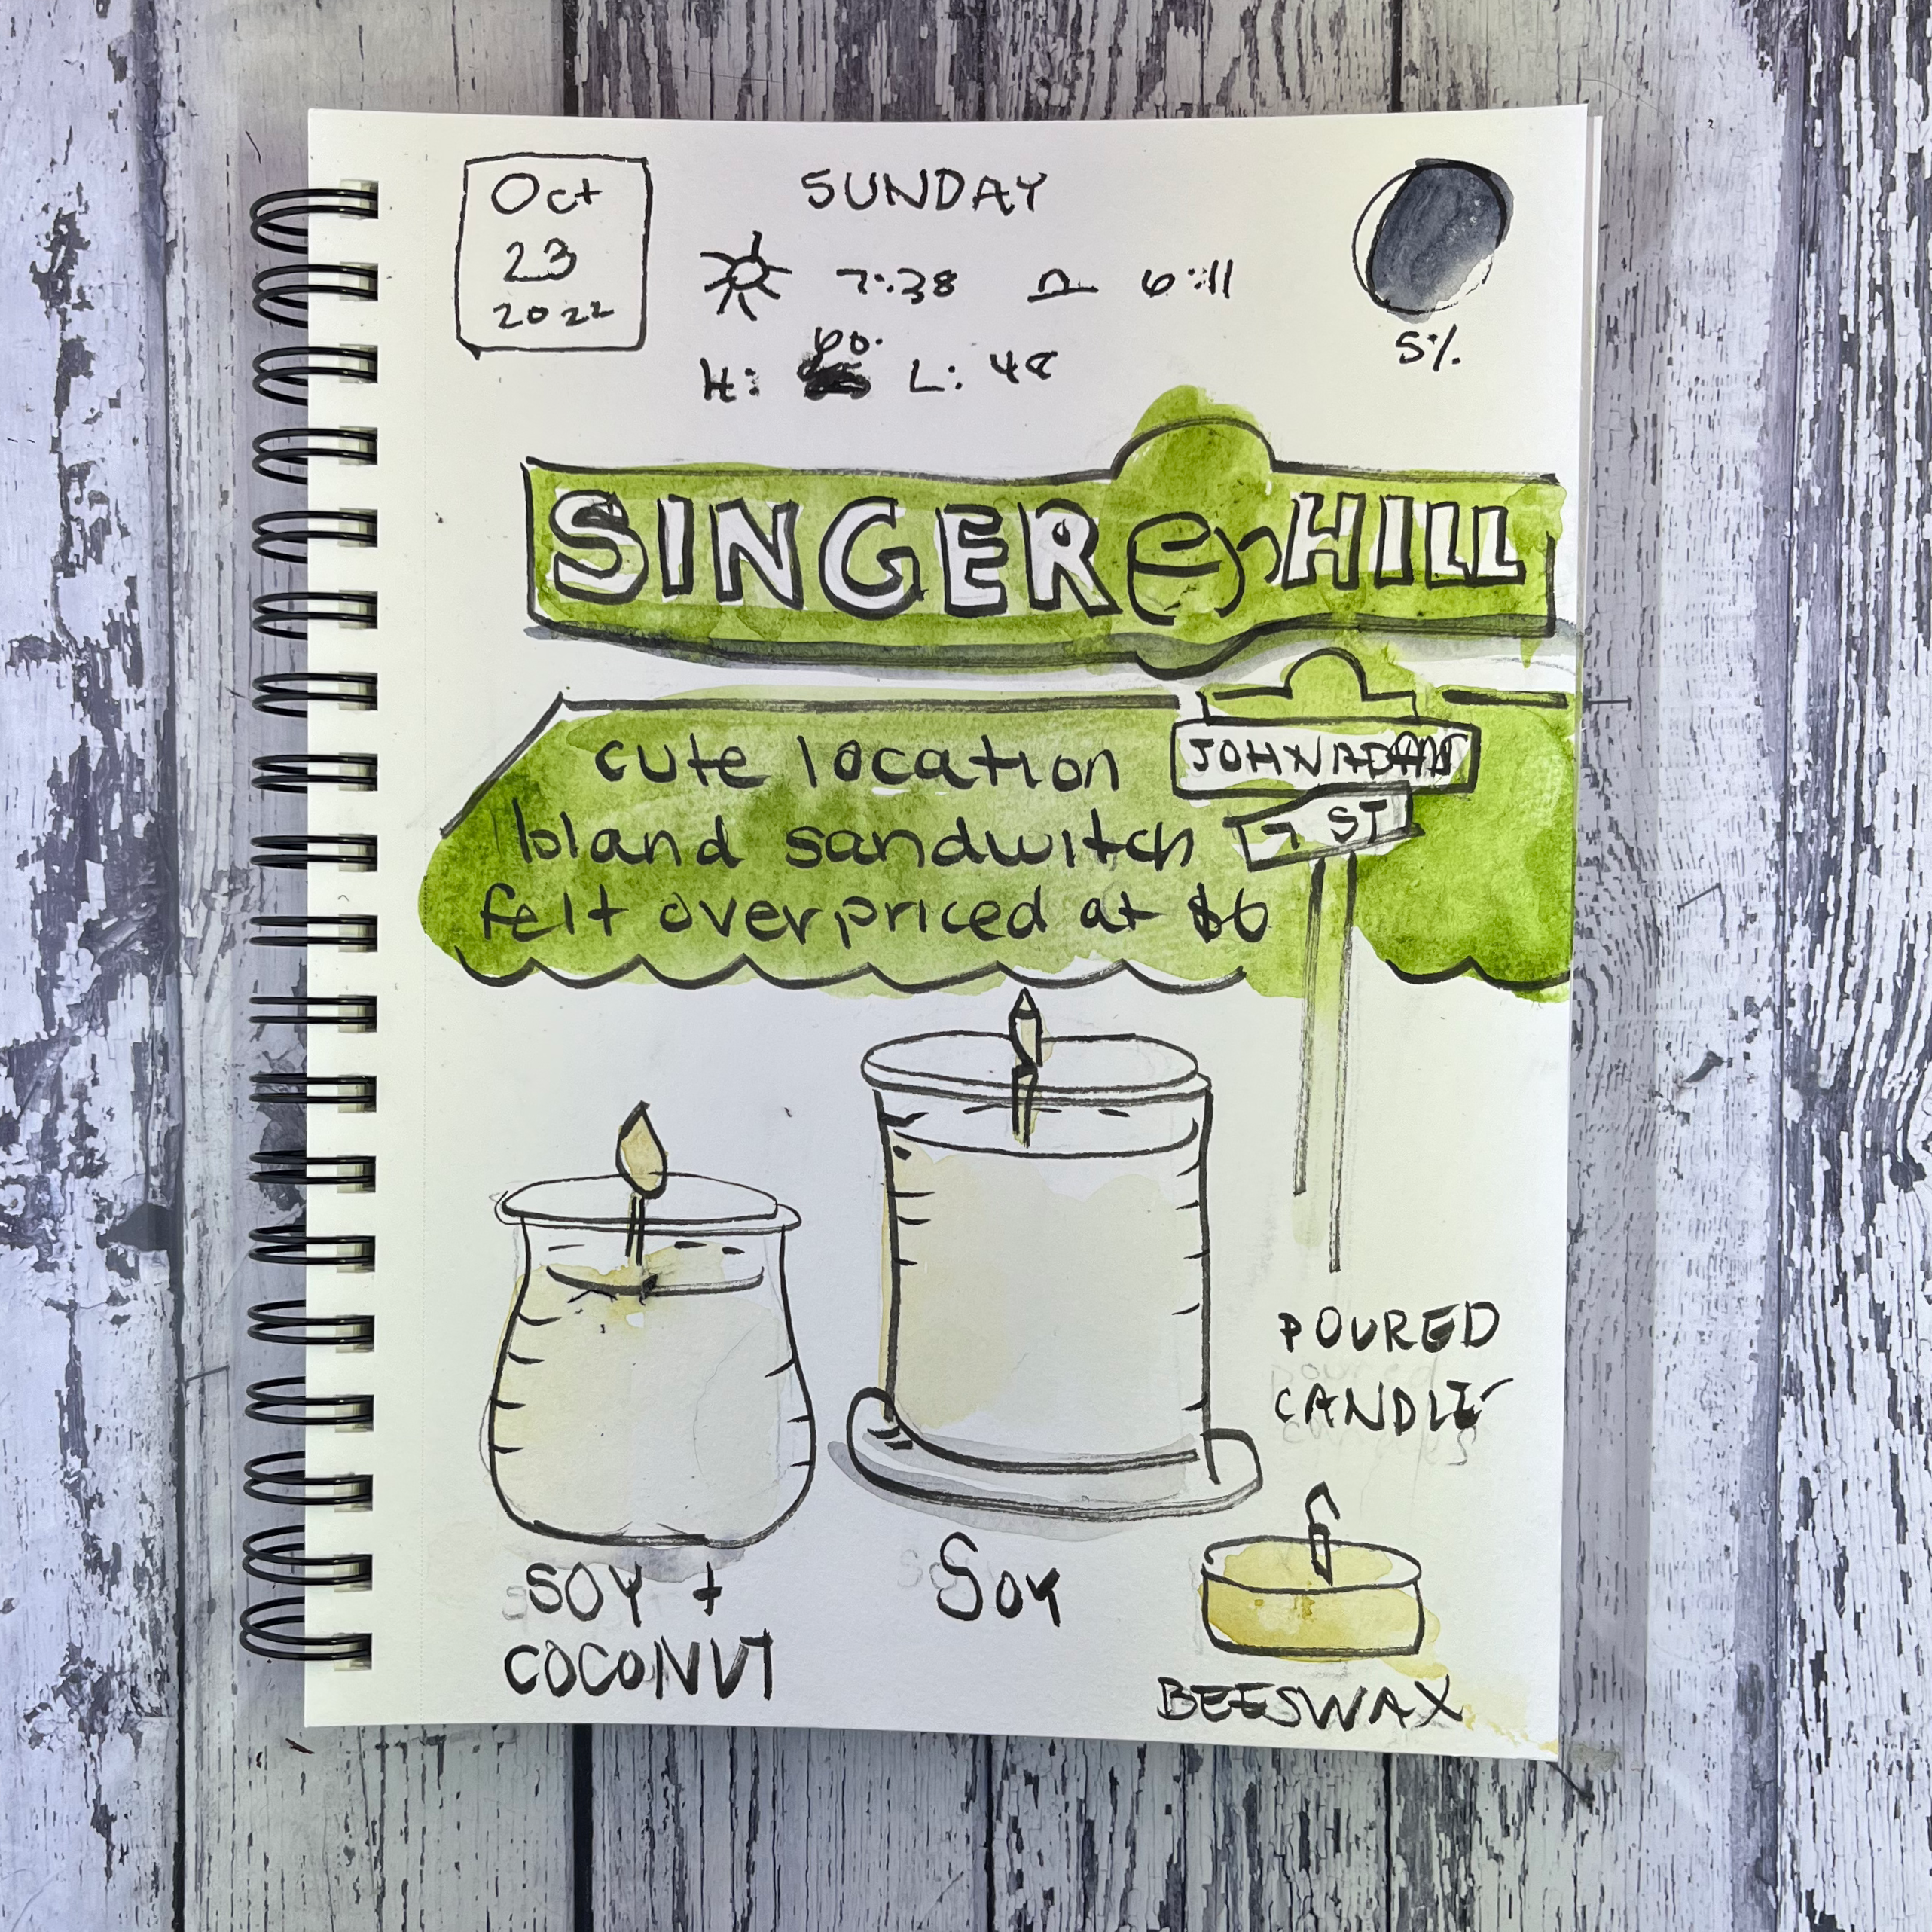 Oct
23
2022
SUNDAY
7:38 6:11
H: 60. L: 48
5%
SINGER HILL
cute location
bland sandwitch
felt overpriced at $6
JOHN ADAMS
7 ST
POURED
CANDLE
SOY +
COCONUT
SOY
BEESWAX